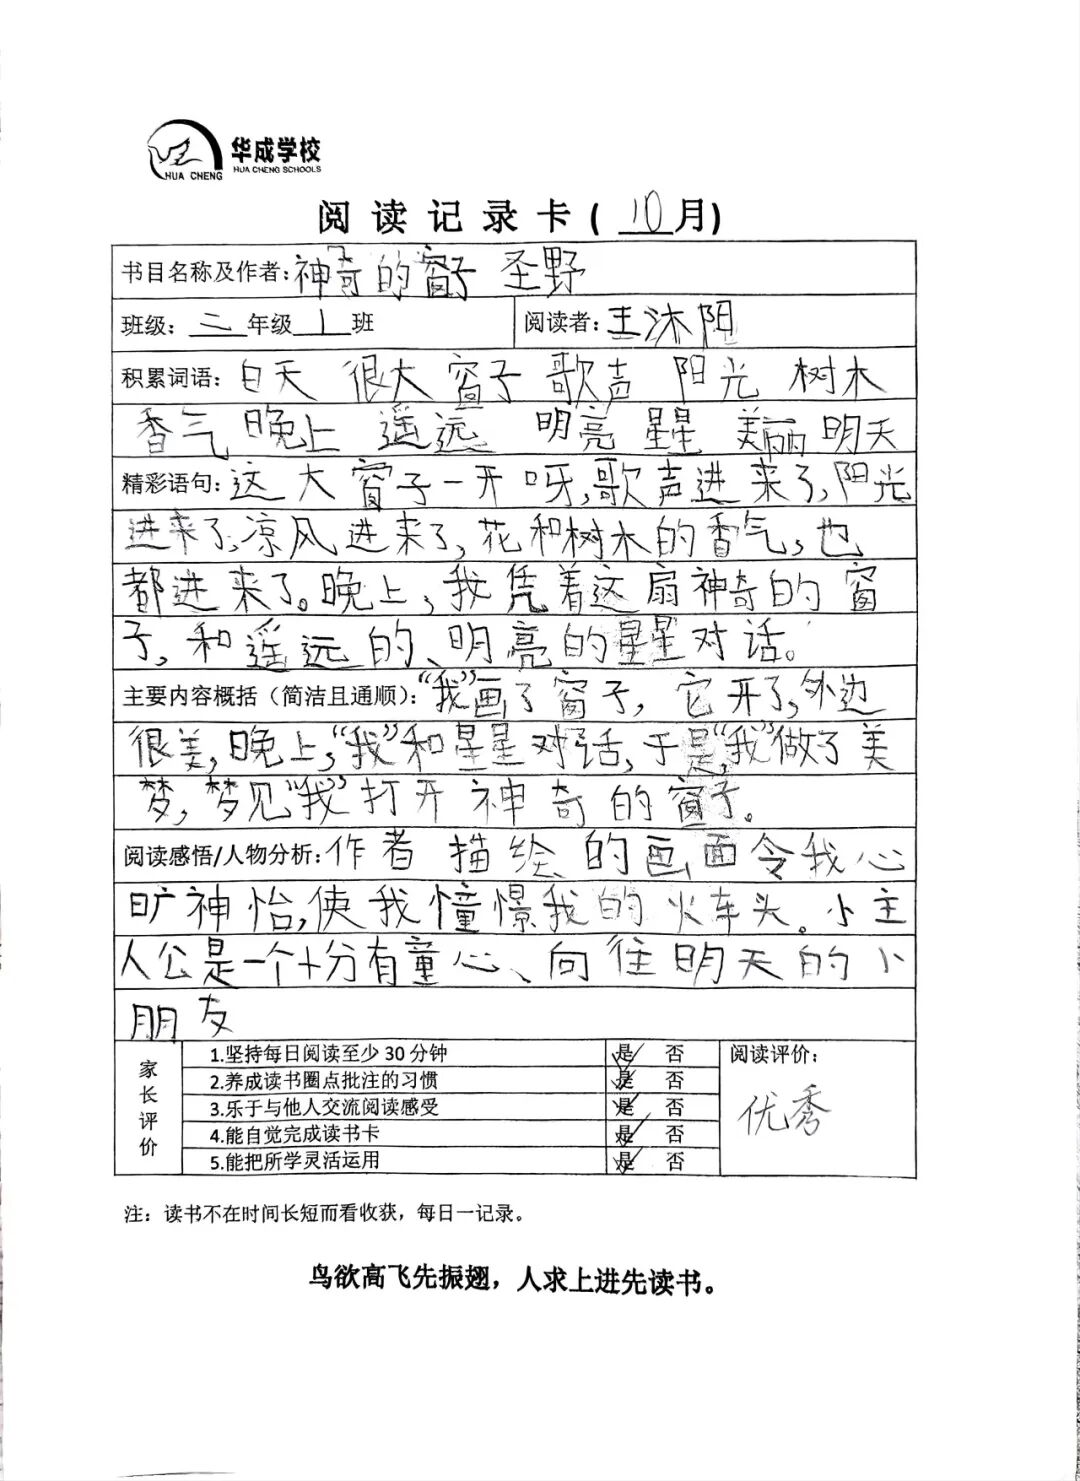 HUA CHENG
华成学校
HUA CHENG SCHOOLS
阅读记录卡(10月)
书目名称及作者:神奇的窗子 圣野
班级:三年级1班 阅读者:王沐阳
积累词语:白天 很大 窗子 歌声 阳光 树木
香气 晚上 遥远 明亮 星星 美丽 明天
精彩语句:这大窗子一开呀,歌声进来了,阳光
进来了,凉风进来了,花和树木的香气,也
都进来了。晚上,我凭着这扇神奇的窗
子,和遥远的、明亮的星星对话。
主要内容概括(简洁且通顺):“我”画了窗子,它开了,外边
很美,晚上,“我”和星星对话,于是,“我”做了美
梦,梦见“我”打开神奇的窗子。
阅读感悟/人物分析:作者描绘的画面令我心
旷神怡,使我憧憬我的火车头。小主
人公是一个十分有童心、向往明天的小
朋友
家长评价
1.坚持每日阅读至少30分钟 是 否
2.养成读书圈点批注的习惯 是 否
3.乐于与他人交流阅读感受 是 否
4.能自觉完成读书卡 是 否
5.能把所学灵活运用 是 否
阅读评价:
优秀
注:读书不在时间长短而看收获,每日一记录。
鸟欲高飞先振翅,人求上进先读书。